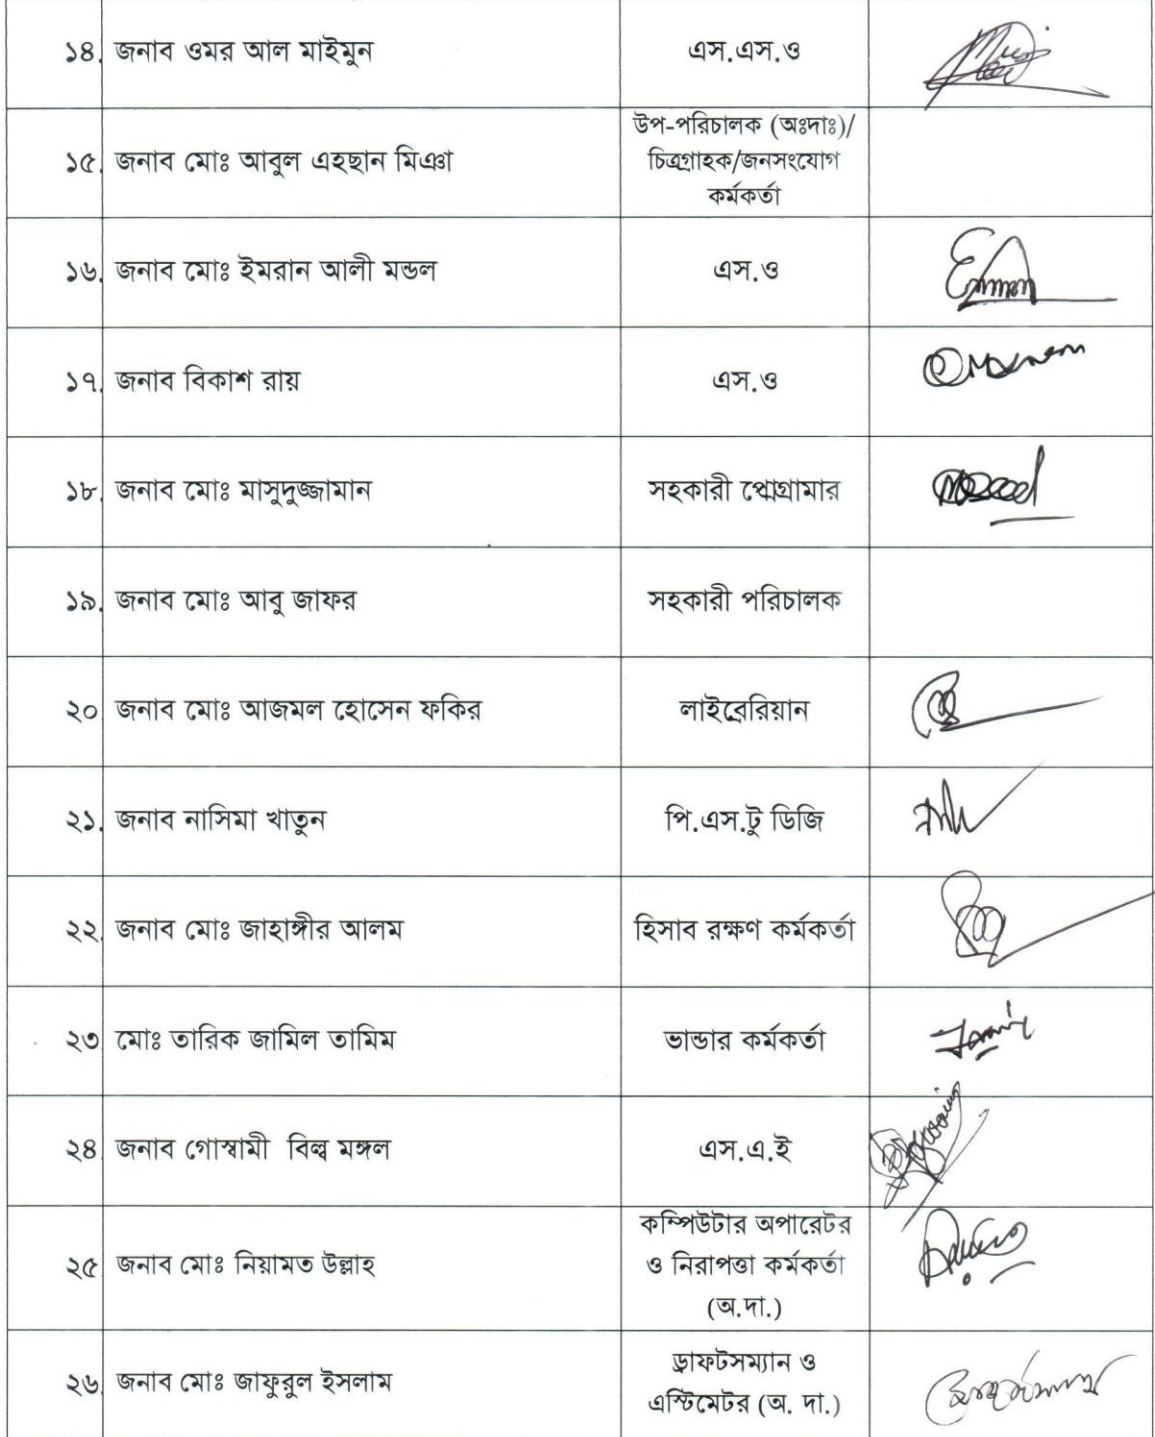 ১৪. জনাব ওমর আল মাইমুন এস.এস.ও
১৫. জনাব মোঃ আবুল এহছান মিঞা উপ-পরিচালক (অঃদাঃ)/
চিত্রগ্রাহক/জনসংযোগ
কর্মকর্তা
১৬. জনাব মোঃ ইমরান আলী মন্ডল এস.ও
১৭. জনাব বিকাশ রায় এস.ও
১৮. জনাব মোঃ মাসুদুজ্জামান সহকারী প্রোগ্রামার
১৯. জনাব মোঃ আবু জাফর সহকারী পরিচালক
২০ জনাব মোঃ আজমল হোসেন ফকির লাইব্রেরিয়ান
২১. জনাব নাসিমা খাতুন পি.এস.টু ডিজি
২২. জনাব মোঃ জাহাঙ্গীর আলম হিসাব রক্ষণ কর্মকর্তা
২৩ মোঃ তারিক জামিল তামিম ভান্ডার কর্মকর্তা
২৪ জনাব গোস্বামী বিল্ব মঙ্গল এস.এ.ই
২৫ জনাব মোঃ নিয়ামত উল্লাহ কম্পিউটার অপারেটর
ও নিরাপত্তা কর্মকর্তা
(অ.দা.)
২৬. জনাব মোঃ জাফুরুল ইসলাম ড্রাফটসম্যান ও
এস্টিমেটর (অ. দা.)